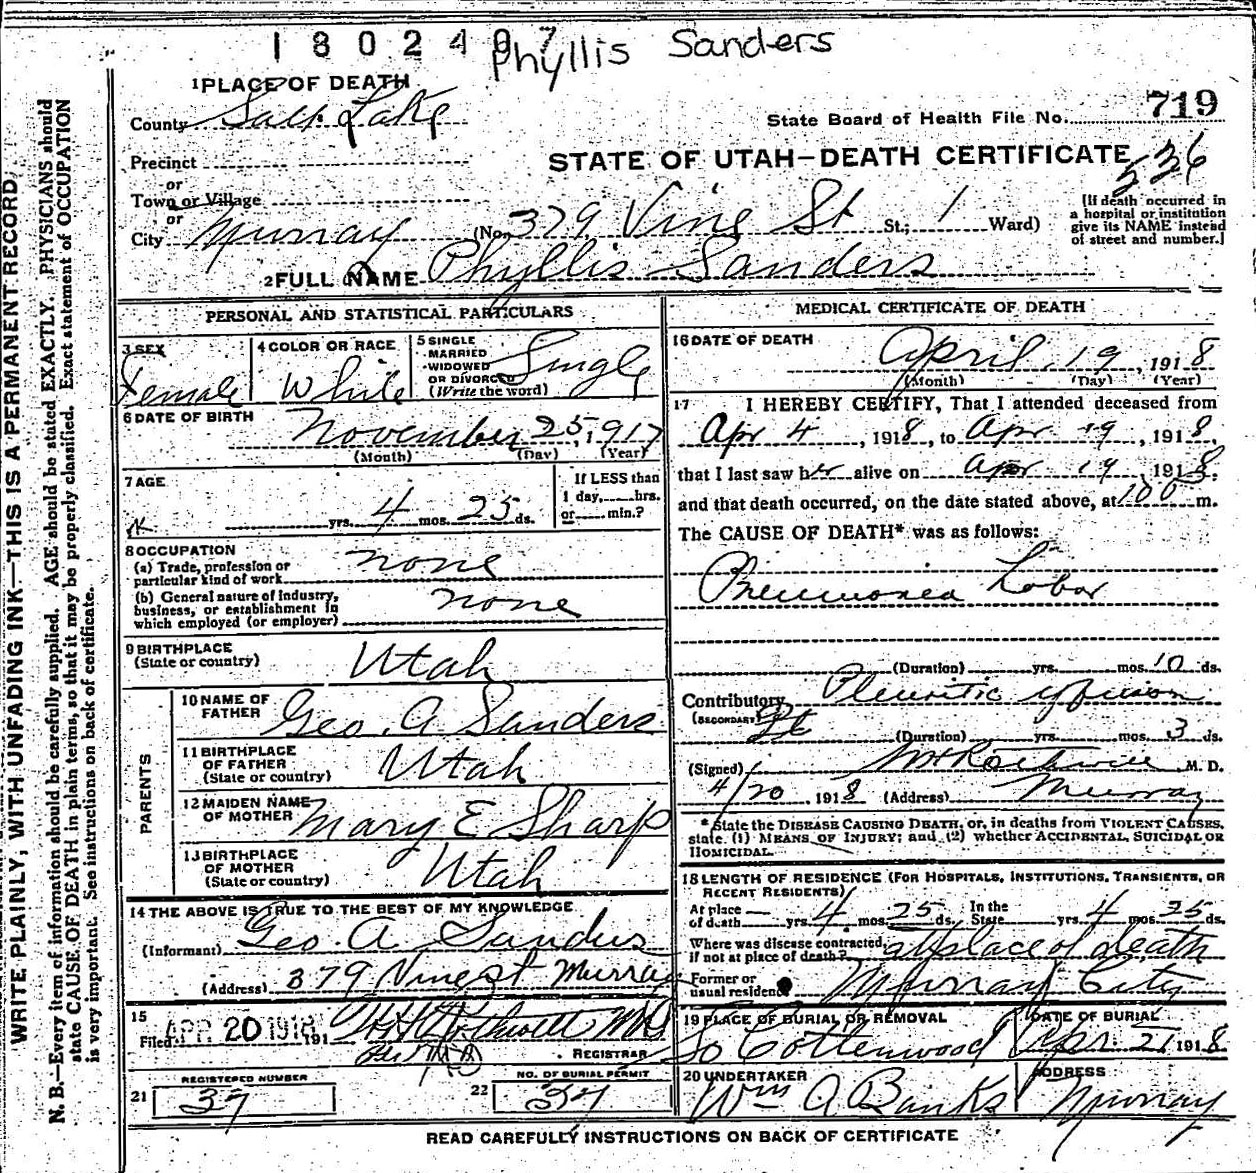 1802497
Phyllis Sanders
1 PLACE OF DEATH
County Salt Lake
State Board of Health File No. 719
Precinct
STATE OF UTAH—DEATH CERTIFICATE
536
or
Town or Village
or
City Murray (No. 379 Vine St St.; 1 Ward)
[If death occurred in
a hospital or institution
give its NAME instead
of street and number.]
2 FULL NAME Phyllis Sanders
PERSONAL AND STATISTICAL PARTICULARS
3 SEX
Female
4 COLOR OR RACE
White
5 SINGLE
MARRIED
WIDOWED
OR DIVORCED
(Write the word)
Single
6 DATE OF BIRTH
November 25, 1917
(Month) (Day) (Year)
7 AGE
yrs. 4 mos. 25 ds.
If LESS than
1 day, hrs.
or min.?
8 OCCUPATION
(a) Trade, profession or
particular kind of work none
(b) General nature of industry,
business, or establishment in
which employed (or employer) none
9 BIRTHPLACE
(State or country) Utah
PARENTS
10 NAME OF
FATHER Geo. A Sanders
11 BIRTHPLACE
OF FATHER
(State or country) Utah
12 MAIDEN NAME
OF MOTHER Mary E Sharp
13 BIRTHPLACE
OF MOTHER
(State or country) Utah
14 THE ABOVE IS TRUE TO THE BEST OF MY KNOWLEDGE
(Informant) Geo. A. Sanders
(Address) 379 Vine st Murray
15
Filed APR 20 1918 191
REGISTRAR
REGISTERED NUMBER
21 37
NO. OF BURIAL PERMIT
22 37
MEDICAL CERTIFICATE OF DEATH
16 DATE OF DEATH
April 19, 1918
(Month) (Day) (Year)
17 I HEREBY CERTIFY, That I attended deceased from
Apr 4, 1918, to Apr 19, 1918,
that I last saw her alive on Apr 19 1918.
and that death occurred, on the date stated above, at 100 m.
The CAUSE OF DEATH* was as follows:
Pneumonea Lobar
(Duration) yrs. mos. 10 ds.
Contributory Pleuritic effusion
(SECONDARY)
(Duration) yrs. mos. 3 ds.
(Signed) M. D.
4/20, 1918 (Address) Murray
* State the DISEASE CAUSING DEATH, or, in deaths from VIOLENT CAUSES,
state (1) MEANS OF INJURY; and (2) whether ACCIDENTAL, SUICIDAL OR
HOMICIDAL.
18 LENGTH OF RESIDENCE (FOR HOSPITALS, INSTITUTIONS, TRANSIENTS, OR
RECENT RESIDENTS)
At place — yrs. 4 mos. 25 ds. In the
of death State yrs. 4 mos. 25 ds.
Where was disease contracted,
if not at place of death? at place of death
Former or
usual residence Murray City
19 PLACE OF BURIAL OR REMOVAL
So Cottenwood
DATE OF BURIAL
Apr. 21 1918
20 UNDERTAKER
Wm A Banks
ADDRESS
Murray
READ CAREFULLY INSTRUCTIONS ON BACK OF CERTIFICATE
WRITE PLAINLY, WITH UNFADING INK—THIS IS A PERMANENT RECORD
N. B.—Every item of information should be carefully supplied. AGE should be stated EXACTLY. PHYSICIANS should
state CAUSE OF DEATH in plain terms, so that it may be properly classified. Exact statement of OCCUPATION
is very important. See instructions on back of certificate.